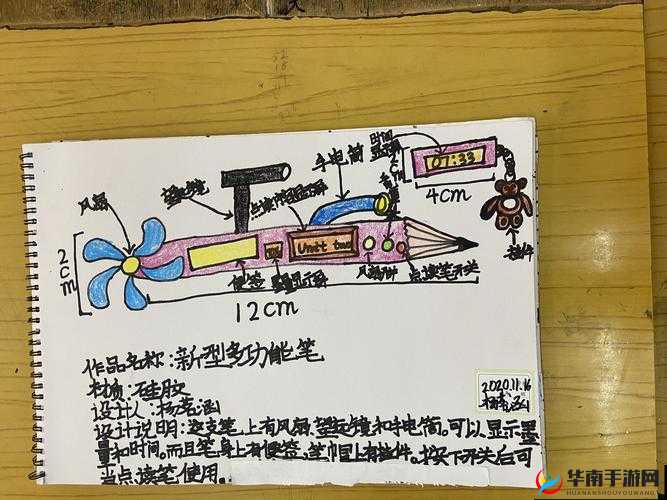 时间
显示屏
07:33
手电筒
望远镜
点读阵显示屏
风扇
4cm
挂件
2cm
Unit two
便签
墨量显示屏
风扇开关
点读笔开关
12cm
作品名称:新型多功能笔
材质:硅胶
设计人:杨茗涵
设计说明:这支笔上有风扇、望远镜和手电筒。可以显示墨
量和时间。而且笔身上有便签、笔帽上有挂件。按下开关后可
当点读笔使用。
2020.11.16
杨茗涵
华南手游网
HUANANSHOUYOUWANG